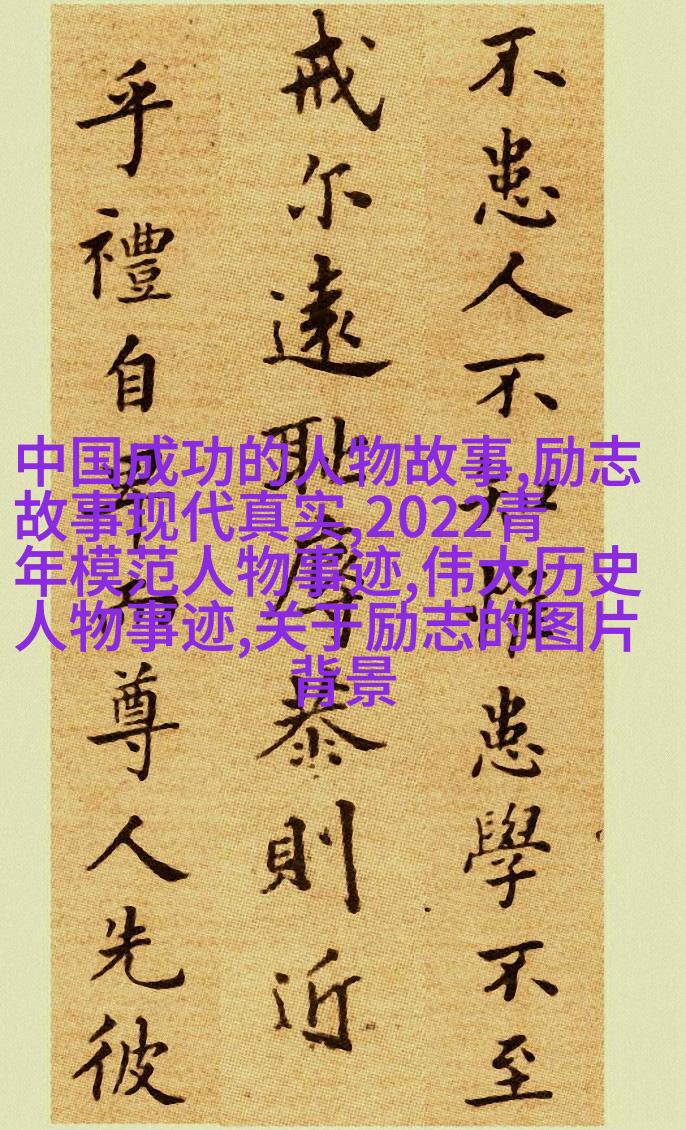 不患人不知惟患學不至
戒尔遠耻辱恭則近
乎禮自卑而尊人先彼
中国成功的人物故事,励志
故事现代真实,2022青
年模范人物事迹,伟大历史
人物事迹,关于励志的图片
背景